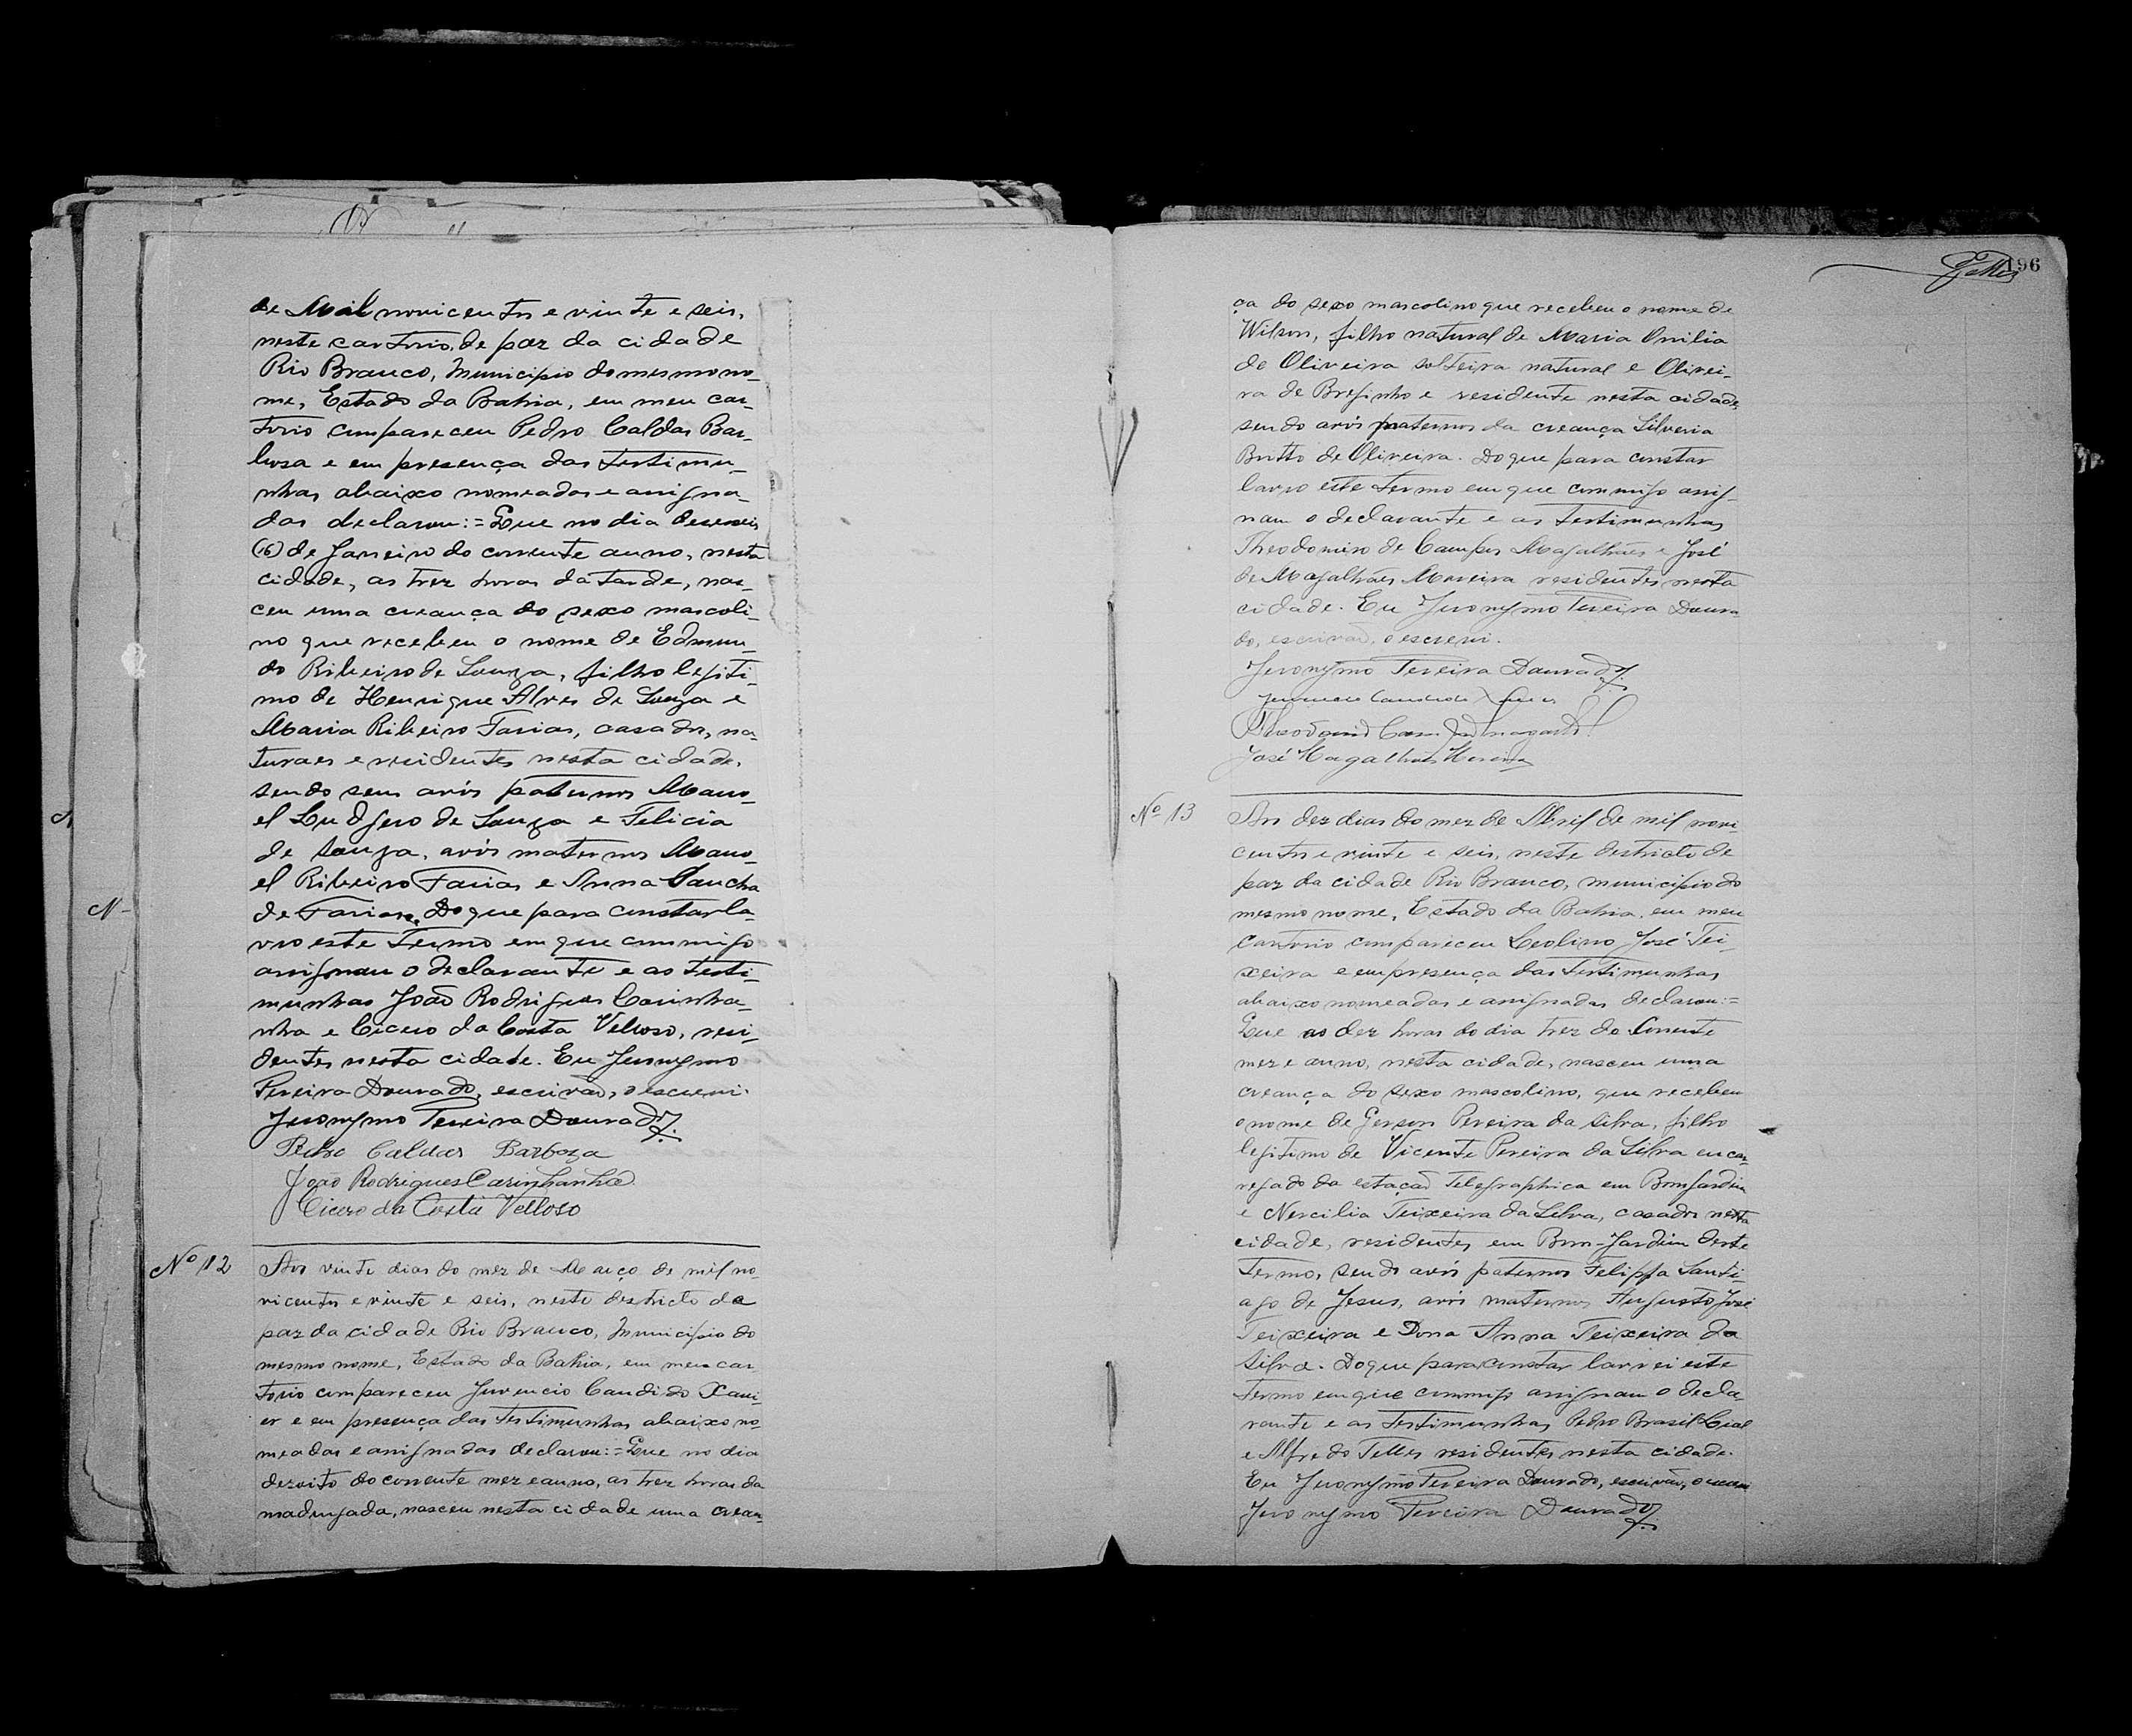 de Mil novicentos e vinte e seis,
neste cartorio, de paz da cidade
Rio Branco, Municipio do mesmo no-
me, Estado da Bahia, em meu car-
torio compareceu Pedro Caldas Bar-
boza e em presença das testimu-
nhas abaixo nomeadas e assigna-
das declarou:= Que no dia deseseis
(16) de Janeiro do corrente anno, nesta
cidade, as trez horas da tarde, nas-
ceu uma creança do sexo mascoli-
no que recebeu o nome de Edmun-
do Ribeiro de Souza, filho legiti-
mo de Henrique Alves de Souza e
Maria Ribeiro Farias, casados, na-
turaes e residentes nesta cidade,
sendo seus avós paternos Mano-
el Ludgero de Souza e Felicia
de Souza, avós maternos Mano-
el Ribeiro Farias e Anna Sancha
de Farias. Do que para constar la-
vro este termo em que commigo
assignam o declarante e as testi-
munhas João Rodrigues Carinha-
nha e Cicero da Costa Velloso, resi-
dentes nesta cidade. Eu Jeronymo
Pereira Dourado, escrivão, o escrevi.
Jeronymo Pereira Dourado
Pedro Caldas Barboza
João Rodrigues Carinhanha
Cicero da Costa Velloso
Nº 12
Aos vinte dias do mez de Março de mil no-
vicentos e vinte e seis, neste destricto da
paz da cidade Rio Branco, Municipio do
mesmo nome, Estado da Bahia, em meu car
torio compareceu Juvencio Candido Xavi-
er e em presença das testimunhas abaixo no-
meadas e assignadas declarou:= Que no dia
dezoito do corrente mez e anno, as trez horas da
madrugada, nasceu nesta cidade uma crean-
196
ça do sexo mascolino que recebeu o nome de
Wilson, filho natural de Maria Onilia
de Oliveira solteira natural e Olivei-
ra de Brejinho e residente nesta cidade,
sendo avós maternos da creança Silveria
Britto de Oliveira. Do que para constar
lavro este termo em que commigo assig-
nam o declarante e as testimunhas
Theodomiro de Campos Magalhães e José
de Magalhães Moreira residentes nesta
cidade. Eu Jeronymo Pereira Doura-
do, escrivão, o escrevi.
Jeronymo Pereira Dourado
José Magalhães Moreira
Nº 13
Aos dez dias do mez de Abril de mil novi-
centos e vinte e seis, neste destricto de
paz da cidade Rio Branco, municipio do
mesmo nome, Estado da Bahia, em meu
cartorio compareceu Leolino José Tei-
xeira e em presença das testimunhas
abaixo nomeadas e assignadas declarou:=
Que as dez horas do dia trez do corrente
mez e anno, nesta cidade, nasceu uma
creança do sexo mascolino, que recebeu
o nome de Gerson Pereira da Silva, filho
legitimo de Vicente Pereira da Silva encar-
regado da estação Telegraphica em Bom Jardim
e Nercilia Teixeira da Silva, casados nesta
cidade, residentes em Bom-Jardim deste
termo, sendo avós paternos Felippa Santi-
ago de Jesus, avós maternos Augusto José
Teixeira e Dona Anna Teixeira da
Silva. Do que para constar lavrei este
termo em que commigo assignam o decla-
rante e as testimunhas Pedro Brasil Leal
e Alfredo Telles residentes nesta cidade.
Eu Jeronymo Pereira Dourado, escrivão, o escrevi
Jeronymo Pereira Dourado